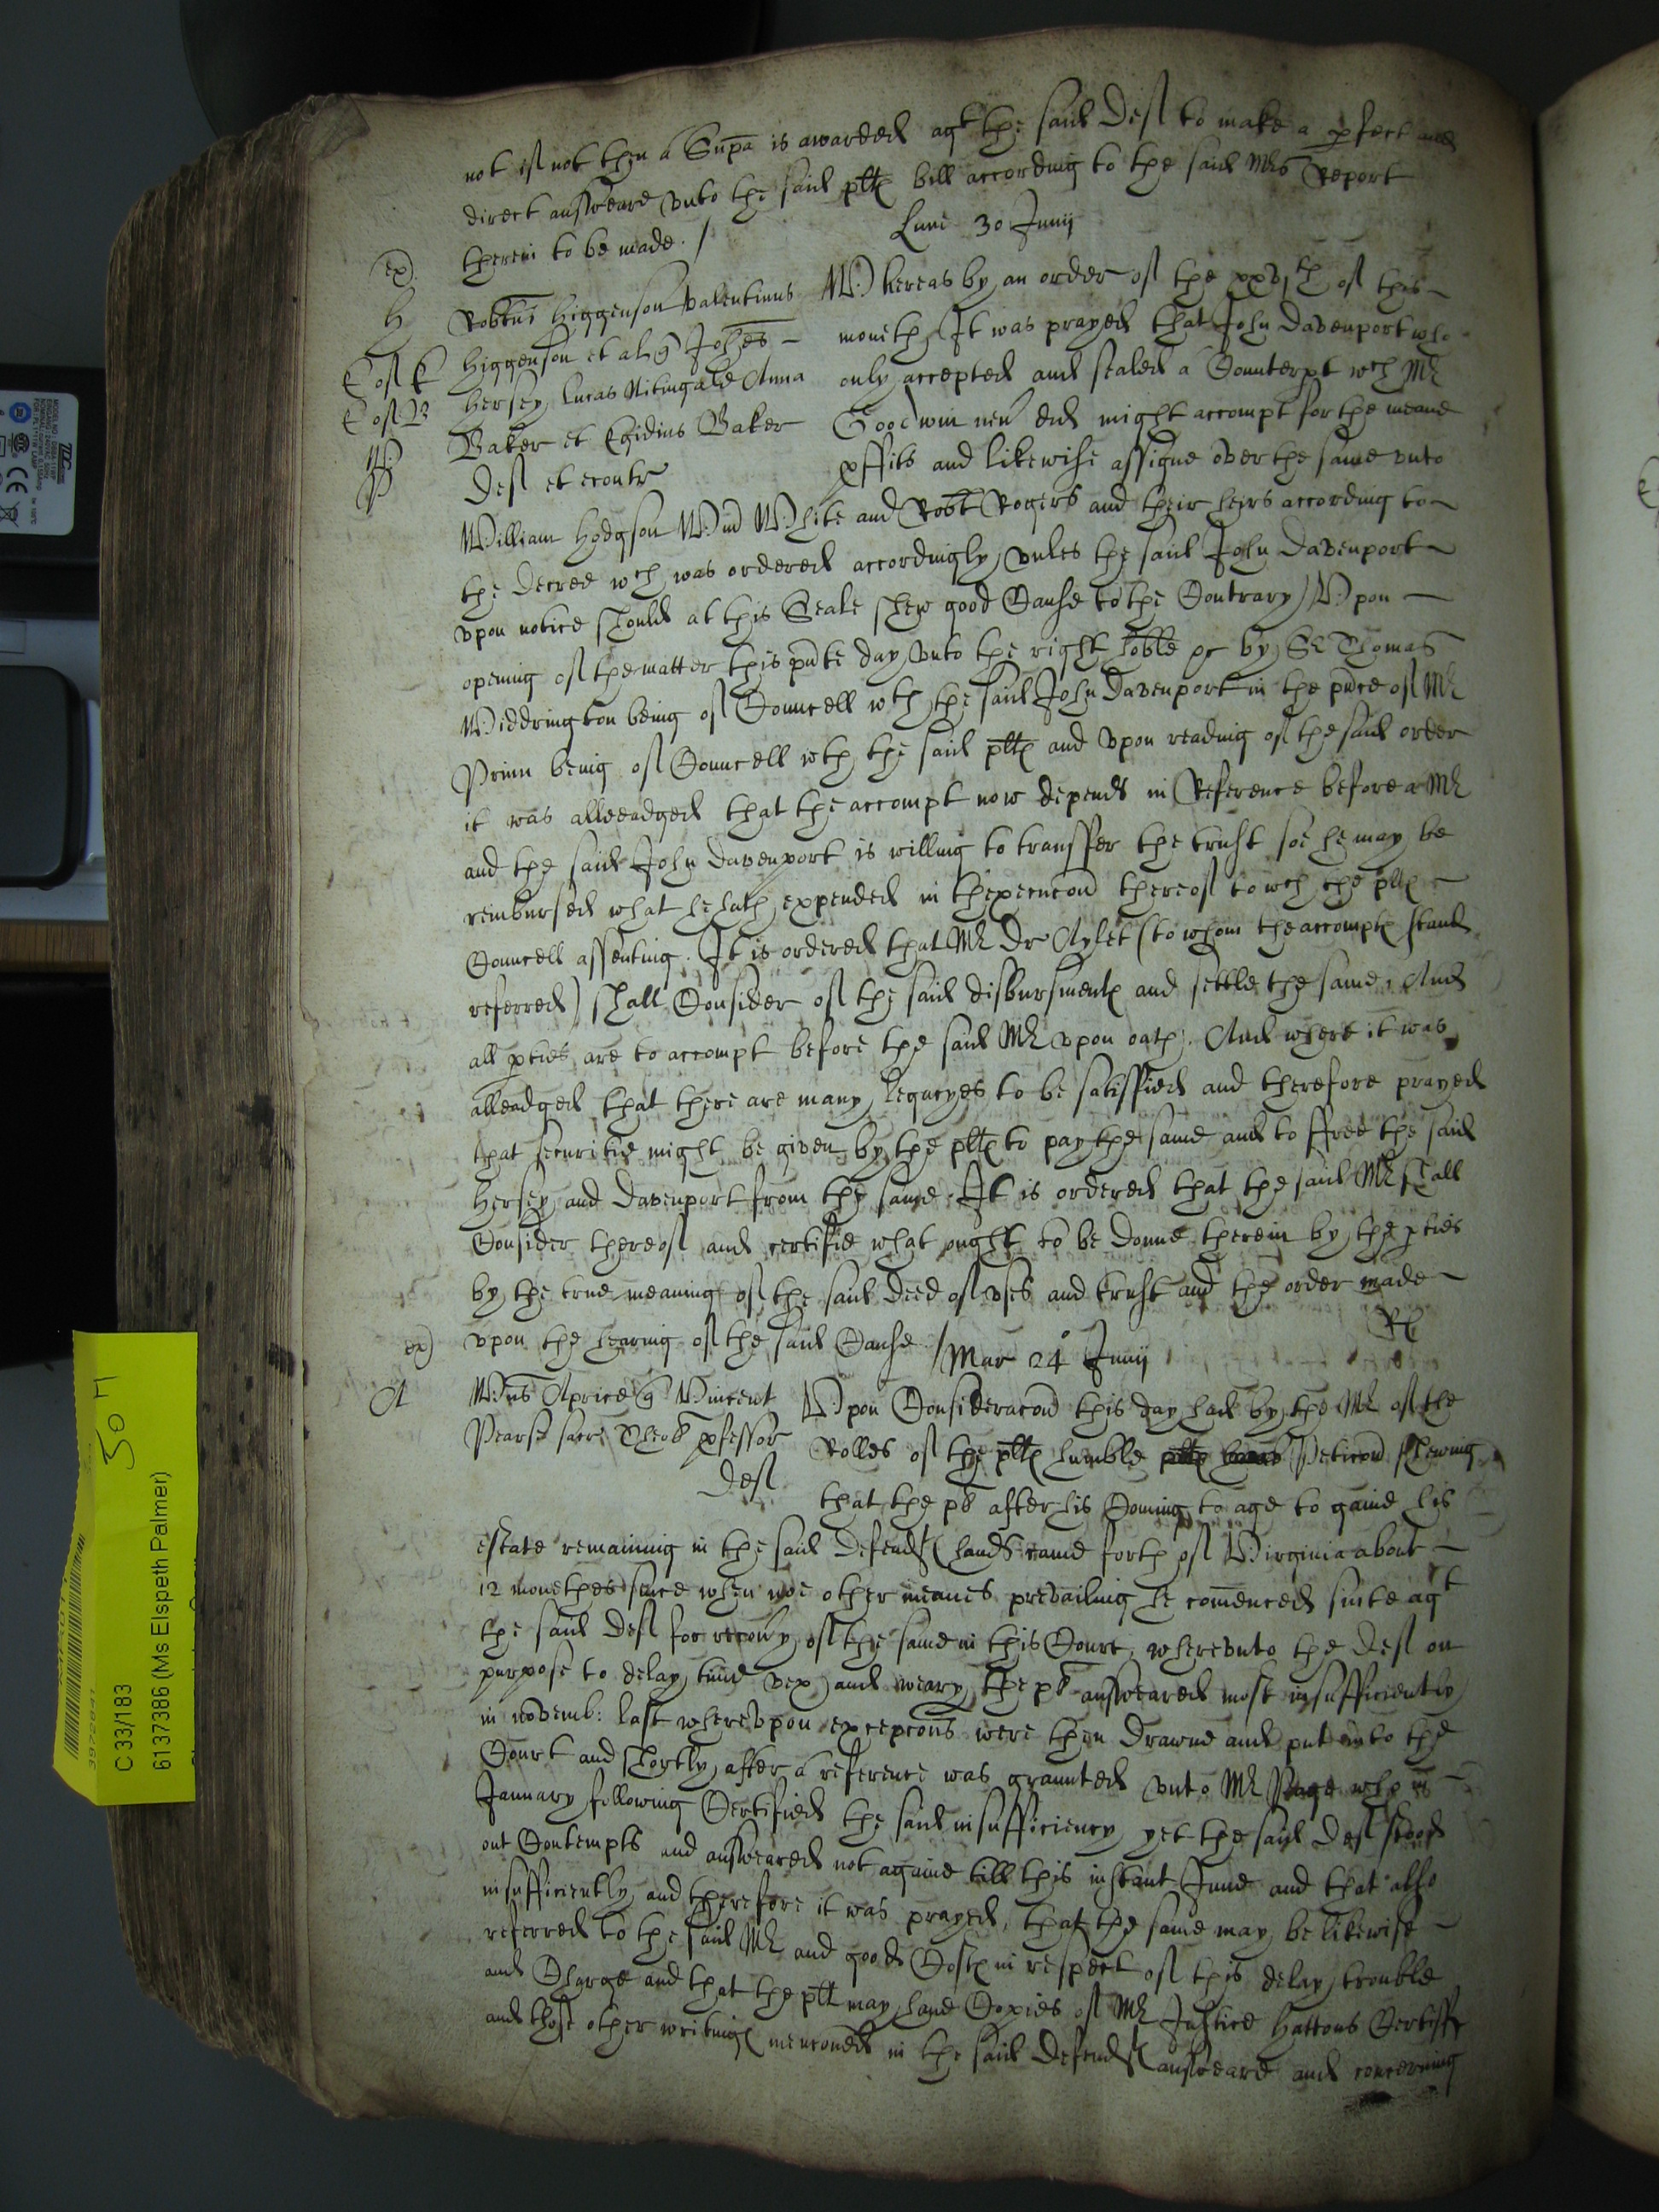 not if not then a Supa is awarded agt the said Deft to make a pfect and
direct answeare vnto the said pltes bill according to the said Mrs Report
therein to be made. /
Lune 30 Junij
ex)
H
Robtus Higgenson Valentinus
Higgenson et al q Johes
Hersey Lucas Nitingale Anna
Baker et Egidius Baker
Deft et econtr
Whereas by an order of the xxvjth of this
moneth It was prayed that John Davenport who
only accepted and sealed a Counterpt wch Mr
Goodwin nevr did might accompt for the meane
pffits and likewise assigne over the same vnto
William Hodgson Wm White and Robt Rogers and their heirs according to
the decree wch was ordered accordingly vnles the said John Davenport
vpon notice should at this Seale shew good Cause to the Contrary Vpon
opening of the matter this pnte day vnto the right hoble &c by Sr Thomas
Widdrington being of Councell wth the said John Davenport in the pnce of Mr
Prinn being of Councell wth the said pltes and vpon reading of the said order
it was alleadged that the accompt now depends in Reference before a Mr
and the said John Davenport is willing to transffer the trust soe he may be
reimbursed what he hath expended in thexecucon thereof to wch the pltes
Councell assenting. It is ordered that Mr Dr Aylet (to whom the accomptes stand
referred) shall Consider of the said disbursmentes and settle the same, And
all pties are to accompt before the said Mr vpon oath. And where it was
alleadged that there are many legacyes to be satisffied and therefore prayed
that securitie might be given by the pltes to pay the same and to ffree the said
Hersey and Davenport from the same. It is ordered that the said Mr shall
Consider thereof and certifie what ought to be donne therein by the pties
by the true meaning of the said deed of vses and trust and the order made
vpon the hearing of the said Cause /
Mar 24o Junij
ex)
A
Wms Aprice q Vincent
Pearse sacre Theol pfessor
Deft
Vpon Consideracon this day had by the Mr of the
Rolles of the pltes humble Peticon shewing
that the pl after his Coming to age to gaine his
estate remaining in the said Defendtes hands came forth of Virginia about
12 monethes since when noe other meanes prevailing he comenced suite agt
the said Deft for recouy of the same in this Court, wherevnto the Deft on
purpose to delay time vex and weary the pl answeared most insufficiently
in novemb: last wherevpon excepcons were then drawne and put into the
Court and shortly after a reference was graunted vnto Mr Page who in
January following Certified the said insufficiency yet the said Deft stood
out Contempts and answeared not againe till this instant June and that also
insufficiently and therefore it was prayed, that the same may be likewise
referred to the said Mr and good Costes in respect of this delay trouble
and Charge and that the plt may have Copies of Mr Justice Hattons Certiffte
and those other writinges menconed in the said Defendtes answeare and concerning
C 33/183
6137386 (Ms Elspeth Palmer)
50 H